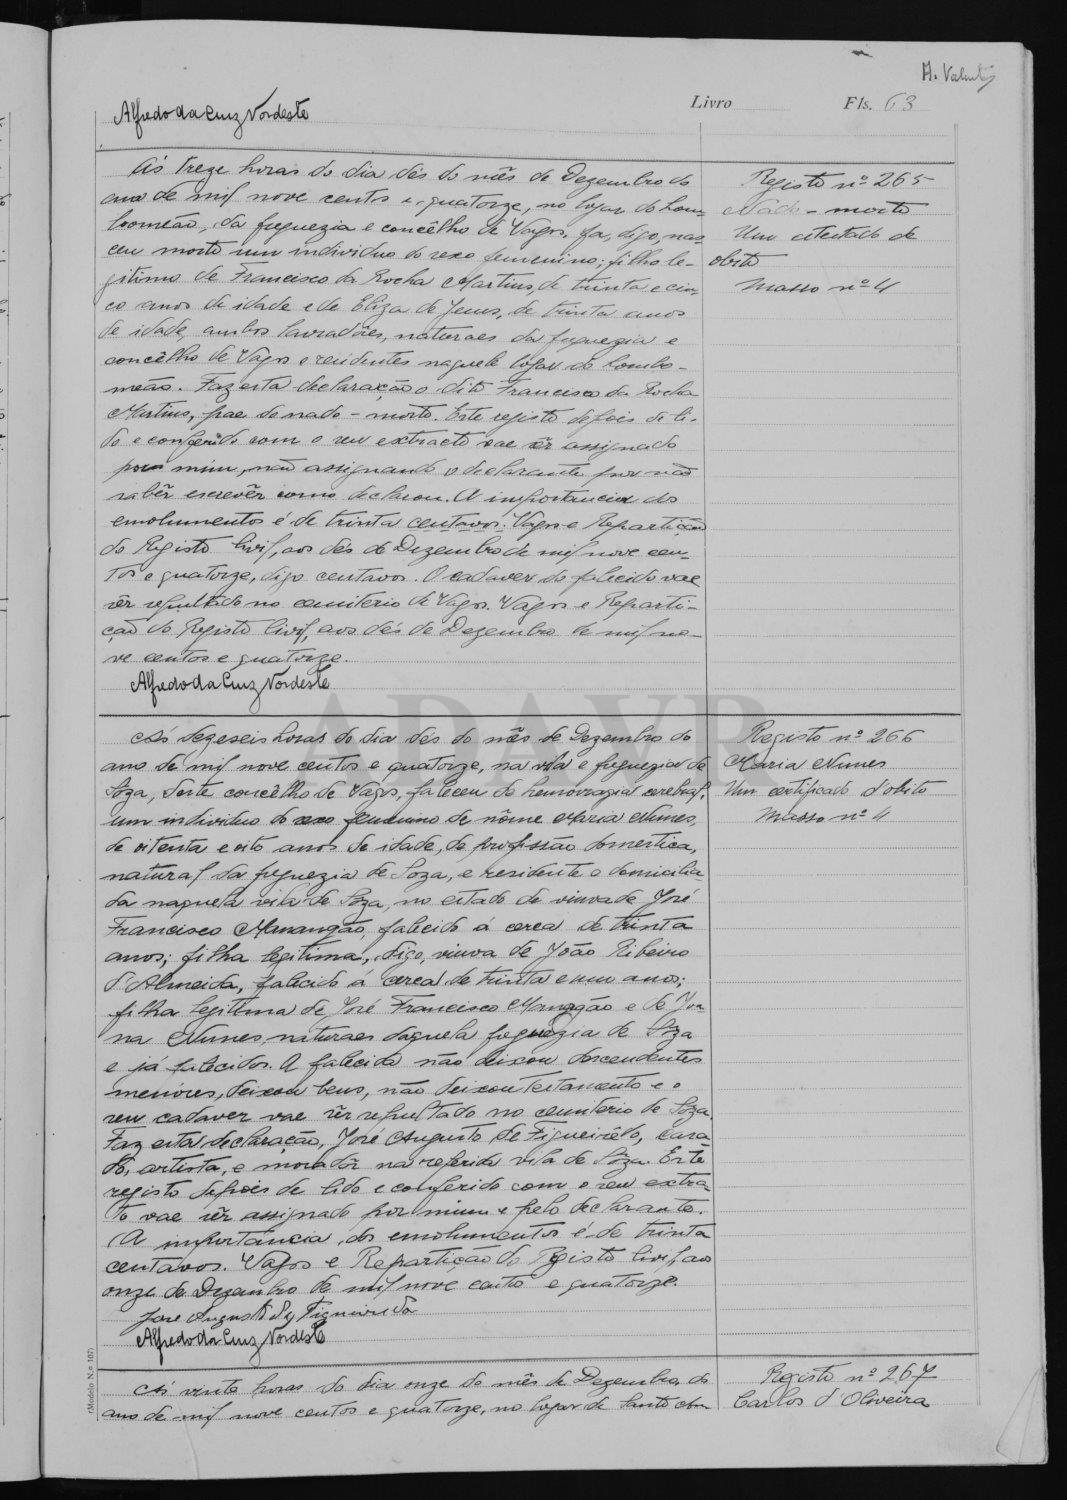 A. Valentim
Livro Fls. 63
Alfredo da Cruz Nordeste
Ás treze horas do dia dés do mês de Dezembro do
ano de mil nove centos e quatorze, no logar do Lom-
bomeão, da freguezia e concêlho de Vagos, fa, digo, nas-
ceu morto um individuo do sexo femenino; filho le-
gitimo de Francisco da Rocha Martins, de trinta e cin-
co anos de idade e de Eliza de Jesus, de trinta anos
de idade, ambos lavradôres, naturaes da freguezia e
concêlho de Vagos e residentes naquele logar do Lombo-
meão. Faz esta declaração o dito Francisco da Rocha
Martins, pae do nado-morto. Este registo depois de li-
do e conferido com o seu extracto vae sêr assignado
por mim, não assignando o declarante por não
sabêr escrevêr como declarou. A importancia dos
emolumentos é de trinta centavos. Vagos e Repartição
do Registo Civil, aos dés de Dezembro de mil nove cen-
tos e quatorze, digo centavos. O cadaver do falecido vae
sêr sepultado no cemiterio de Vagos. Vagos e Reparti-
ção do Registo Civil, aos dés de Dezembro de mil no-
ve centos e quatorze.
Alfredo da Cruz Nordeste
Registo nº 265
Nado-morto
Um atestado de
obito
Masso nº 4
ADAVR
Ás dezeseis horas do dia dés do mês de Dezembro do
ano de mil nove centos e quatorze, na vila e freguezia de
Soza, deste concêlho de Vagos, faleceu de hemorragia cerebral,
um individuo do sexo femenino de nôme Maria Nunes,
de oitenta e oito anos de idade, de profissão domestica,
natural da freguezia de Soza, e residente e domicilia-
da naquela vila de Soza, no estado de viuva de José
Francisco Manangão, falecido á cerca de trinta
anos; filha legitima, digo, viuva de João Ribeiro
d'Almeida, falecido á cerca de trinta e um anos;
filha legitima de José Francisco Manangão e de Joa-
na Nunes, naturaes daquela freguezia de Soza
e já falecidos. A falecida não deixou descendentes
menores, deixou bens, não deixou testamento e o
seu cadaver vae sêr sepultado no cemiterio de Soza.
Faz esta declaração, José Augusto de Figueirêdo, casa-
do, artista, e moradôr na referida vila de Sôza. Este
registo depois de lido e conferido com o seu extra-
to vae sêr assignado por mim e pelo declarante.
A importancia dos emolumentos é de trinta
centavos. Vagos e Repartição do Registo Civil, aos
onze de Dezembro de mil nove centos e quatorze.
José Augusto de Figueirido
Alfredo da Cruz Nordeste
Registo nº 266
Maria Nunes
Um certificado d'obito
Masso nº 4
(Modelo N.º 107)
Ás vinte horas do dia onze do mês de Dezembro do
ano de mil nove centos e quatorze, no logar de Santo
Registo nº 267
Carlos d'Oliveira